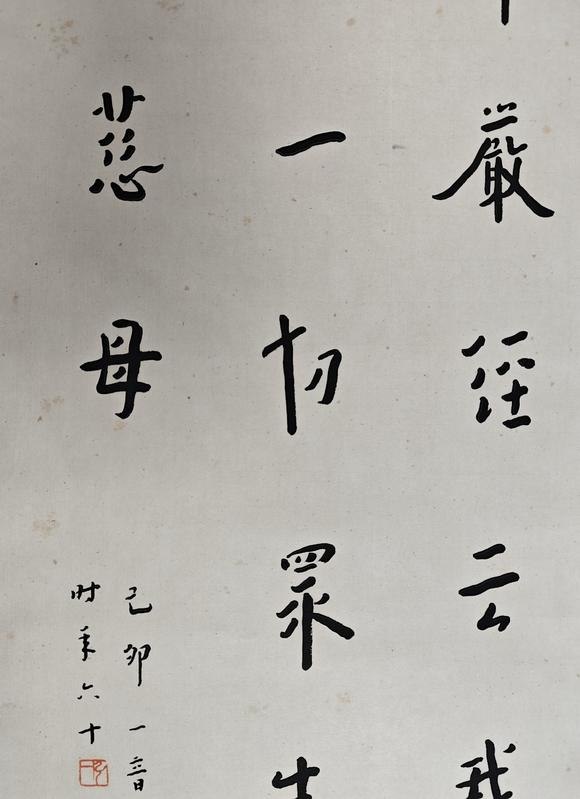 嚴經云我
一切眾生
慈母
己卯一音
時年六十